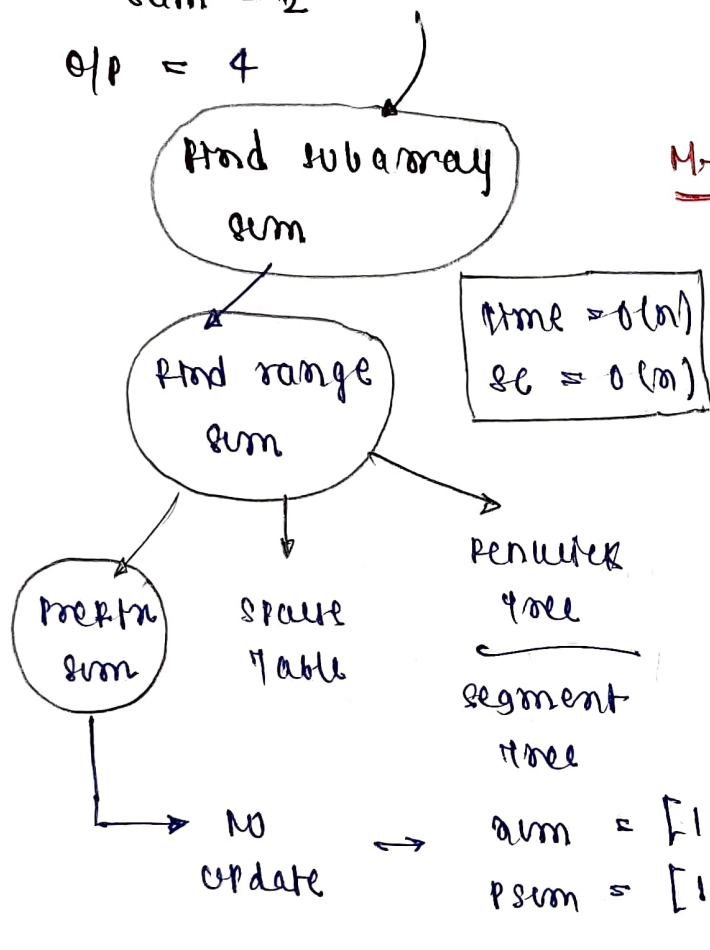 sum = 2
O/P = 4
Find subarray
sum
M
time = O(n)
SC = O(n)
Find range
sum
Prefix
sum
Sparse
Table
Fenwick
Tree
segment
tree
NO
update
↔
arr = [1
psum = [1